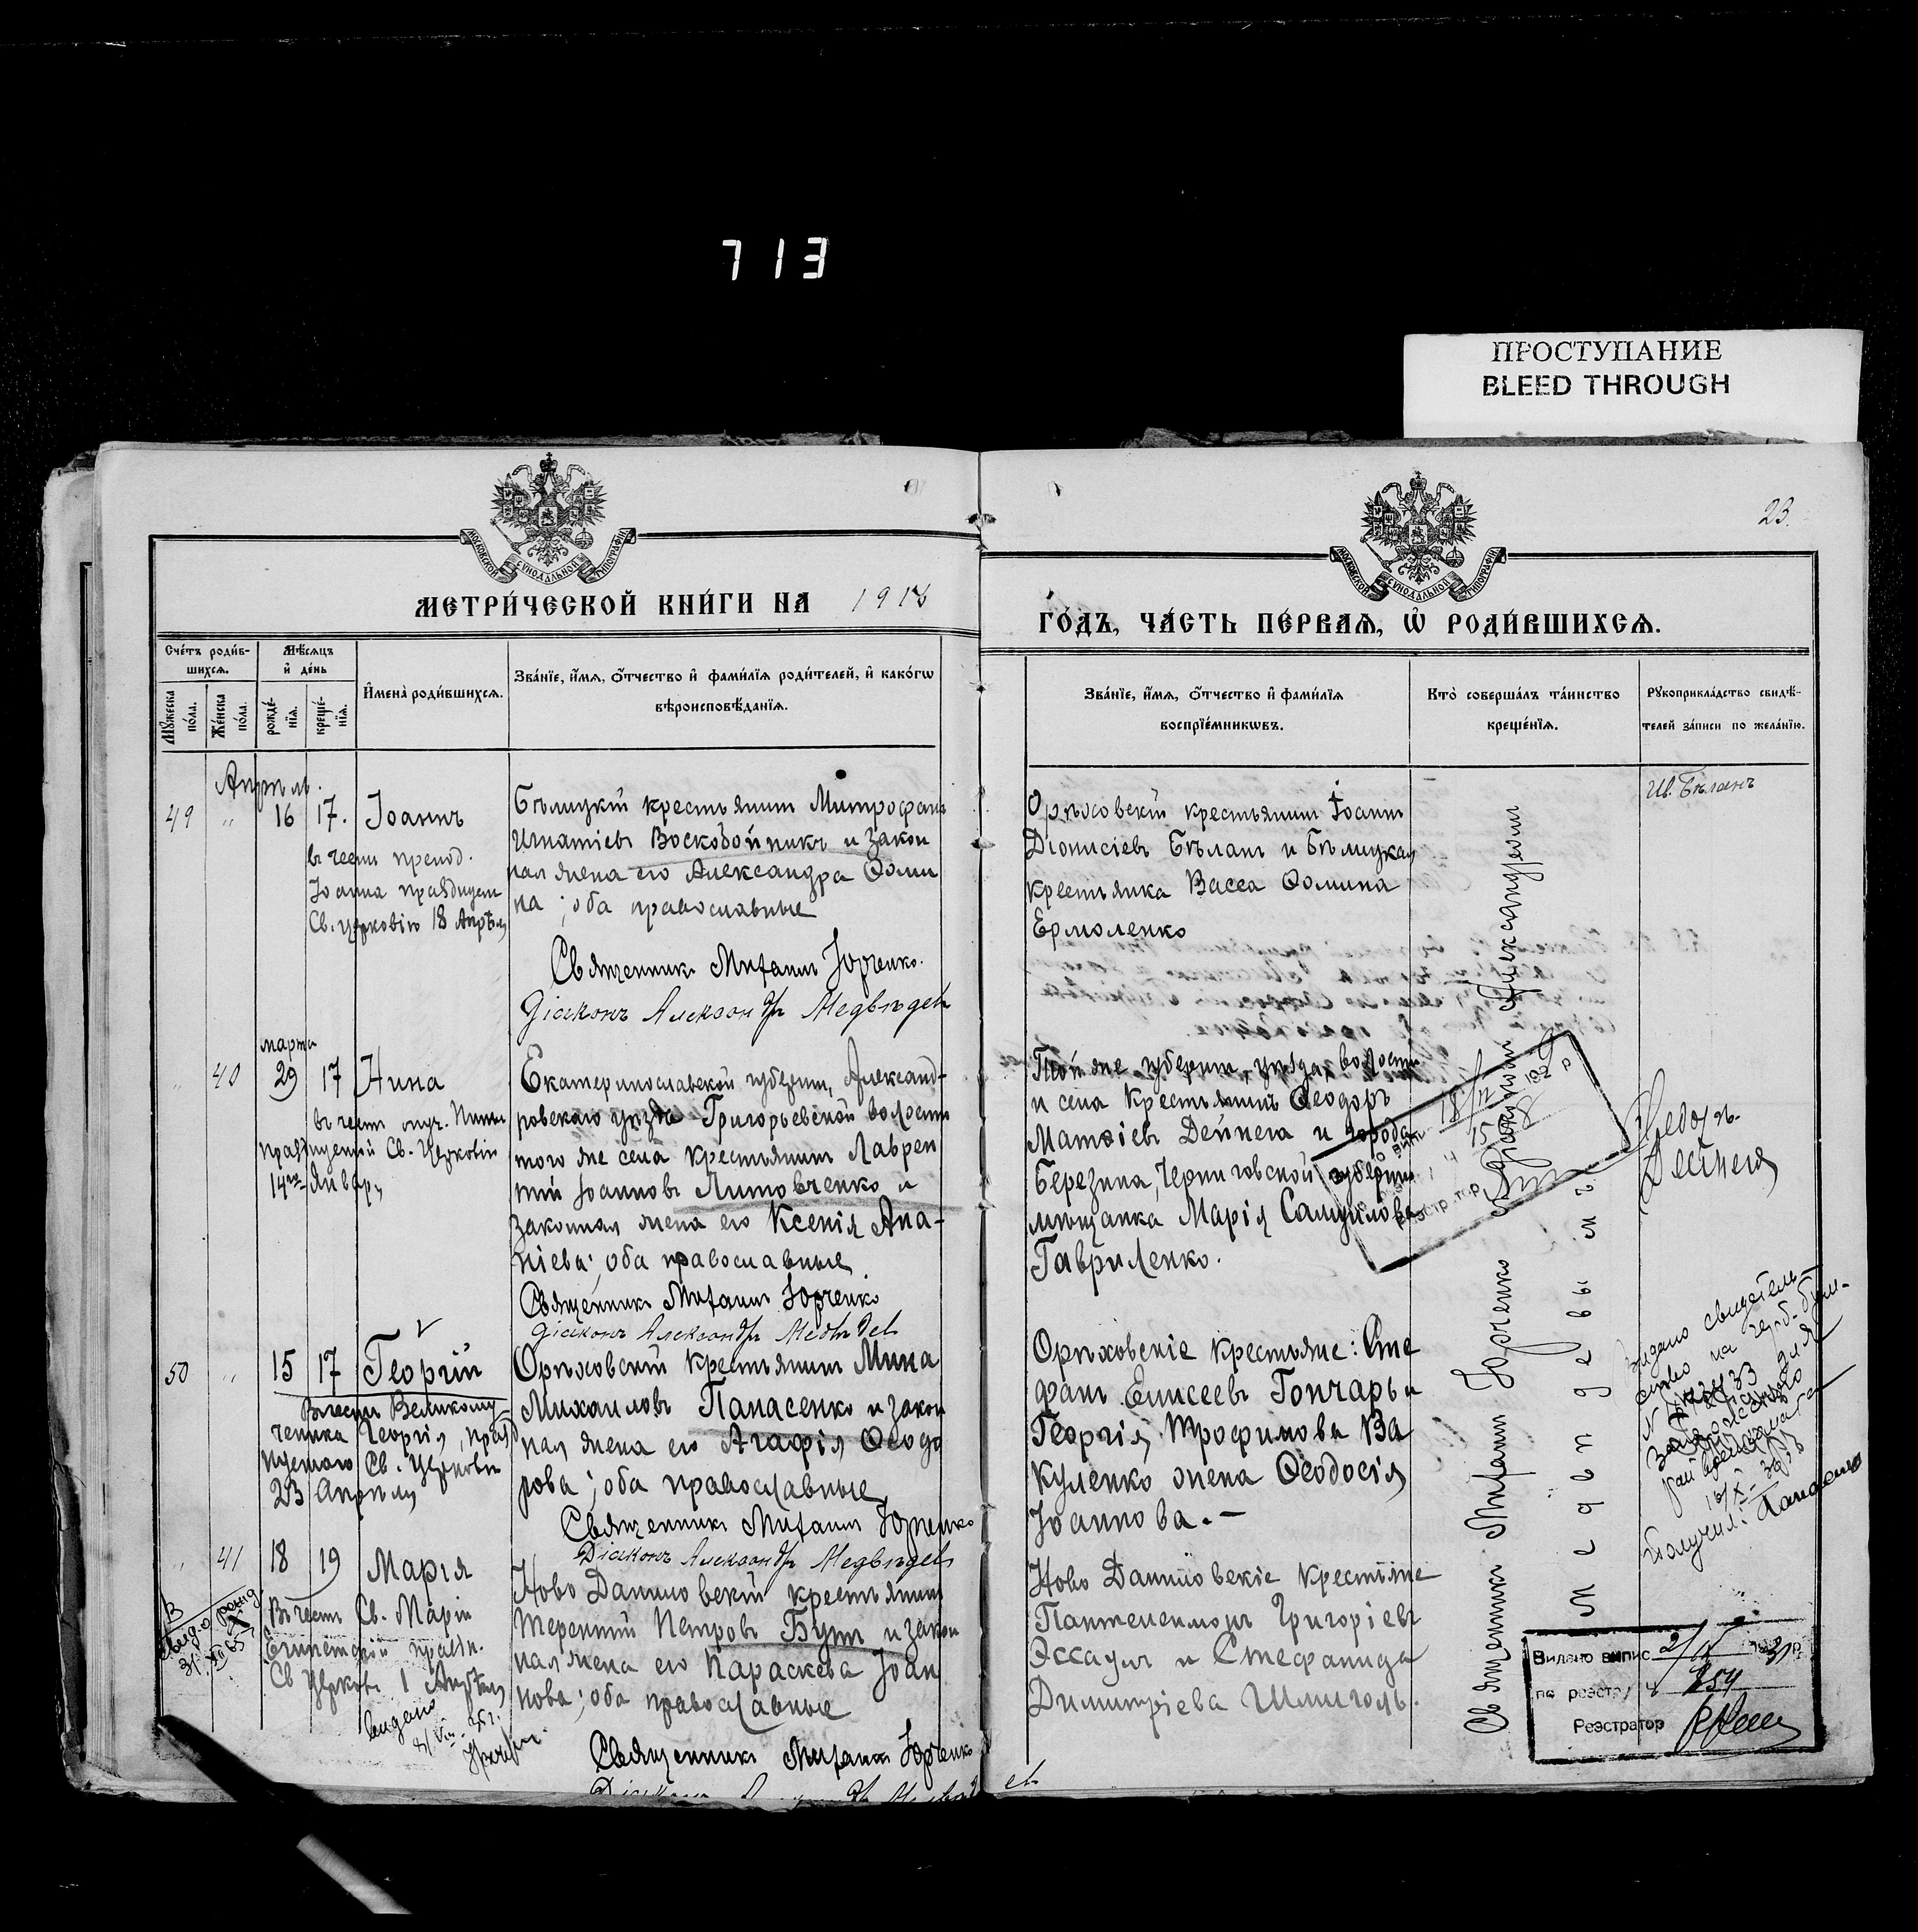 713
ПРОСТУПАНИЕ
BLEED THROUGH
23.
МОСКОВСКОЙ СѴНОДАЛЬНОЙ ТИПОГРАФІИ
МОСКОВСКОЙ СѴНОДАЛЬНОЙ ТИПОГРАФІИ
МЕТРИ́ЧЕСКОЙ КНИ́ГИ НА 1918
ГО́ДЪ, ЧА́СТЬ ПЕ́РВАЯ, Ѡ҆ РОДИ́ВШИХСЯ.
Сче́тъ роди́в-
шихся.
Мѣ́сяцъ
и҆ де́нь
Мꙋжеска по́ла.
Же́нска по́ла.
рожде́-
нїя.
креще́-
нїя.
И҆мена̀ роди́вшихся.
Зва́нїе, и҆́мя, ѻ҆́тчество и҆ фами́лїя роди́телей, и҆ како́гѡ
вѣроисповѣ́данїя.
Зва́нїе, и҆́мя, ѻ҆́тчество и҆ фами́лїя
воспрїе́мникѡвъ.
Кто̀ соверша́лъ та́инство
креще́нїя.
Рꙋкоприкла́дство свидѣ́-
телей за́писи по жела́нїю.
Апрѣль.
49 " 16 17. Іоаннъ
въ честь препод.
Іоанна празднуем
Св. церковію 18 Апрѣля
Бѣлицкій крестьянинъ Митрофанъ
Игнатіевъ Воскобойникъ и закон
ная жена его Александра Ѳоми
на; оба православные
Священникъ Михаилъ Юрченко.
Діаконъ Александръ Медвѣдевъ
Орѣховскій крестьянинъ Іоаннъ
Діонисіевъ Бѣланъ и Бѣлицкая
крестьянка Васса Ѳомина
Ермоленко
Ив. Бѣланъ
марта
" 40 29 17 Нина
въ честь муч. Нины
празднуемой Св. Церковію
14го Января
Екатеринославской губерніи, Александ-
ровскаго уѣзда Григорьевской волости
того же села крестьянинъ Лаврен
тій Іоанновъ Литовченко и
законная жена его Ксенія Ана-
ніева; оба православные
Священникъ Михаилъ Юрченко
Діаконъ Александръ Медвѣдевъ
Той же губерніи, уѣзда, волости
и села крестьянинъ Ѳеодоръ
Матѳіевъ Дейнега и города
Березина, Черниговской губерніи
мѣщанка Марія Самуилова
Гавриленко.
Ѳедоръ
Дейнега
50 " 15 17 Георгій
Въ честь Великому-
ченика Георгія, празд
нуемаго Св. Церковію
23 Апрѣля
Орѣховскій крестьянинъ Мина
Михаиловъ Панасенко и закон
ная жена его Агафія Ѳеодо
рова; оба православные
Священникъ Михаилъ Юрченко
Діаконъ Александръ Медвѣдевъ
Орѣховскіе крестьяне: Сте
фанъ Елисеевъ Гончаръ и
Георгія Трофимова Ва
куленко жена Ѳеодосія
Іоаннова.-
Видано свидетель-
ство на герб. бум-
Получил: Панасенко
" 41 18 19 Марія
Въ честь Св. Маріи
Египетской праздн.
Св Церков. 1 Апрѣля
Ново Даниловскій крестьянинъ
Терентій Петровъ Бутъ и закон
ная жена его Параскева Іоан
нова; оба православные
Священникъ Михаилъ Юрченко
Ново Даниловскіе крестьяне
Пантелеимонъ Григоріевъ
Эссаулъ и Стефанида
Димитріева Шмиголь.
Священникъ Михаилъ Юрченко
Медвѣдевымъ
Видано випис 2/IV 1931 р.
по реэстру ч 254
Реэстратор